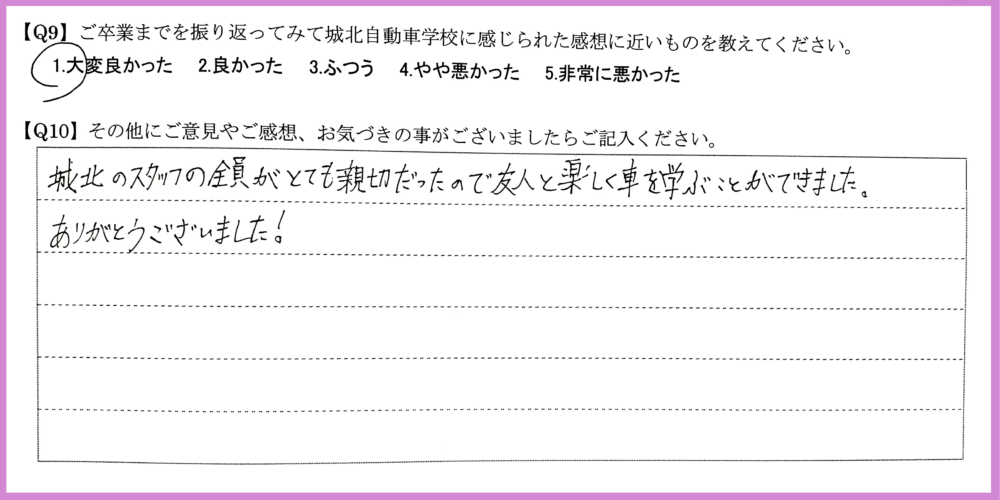 【Q9】ご卒業までを振り返ってみて城北自動車学校に感じられた感想に近いものを教えてください。
1.大変良かった 2.良かった 3.ふつう 4.やや悪かった 5.非常に悪かった
【Q10】その他にご意見やご感想、お気づきの事がございましたらご記入ください。
城北のスタッフの全員がとても親切だったので友人と楽しく車を学ぶことができました。
ありがとうございました!